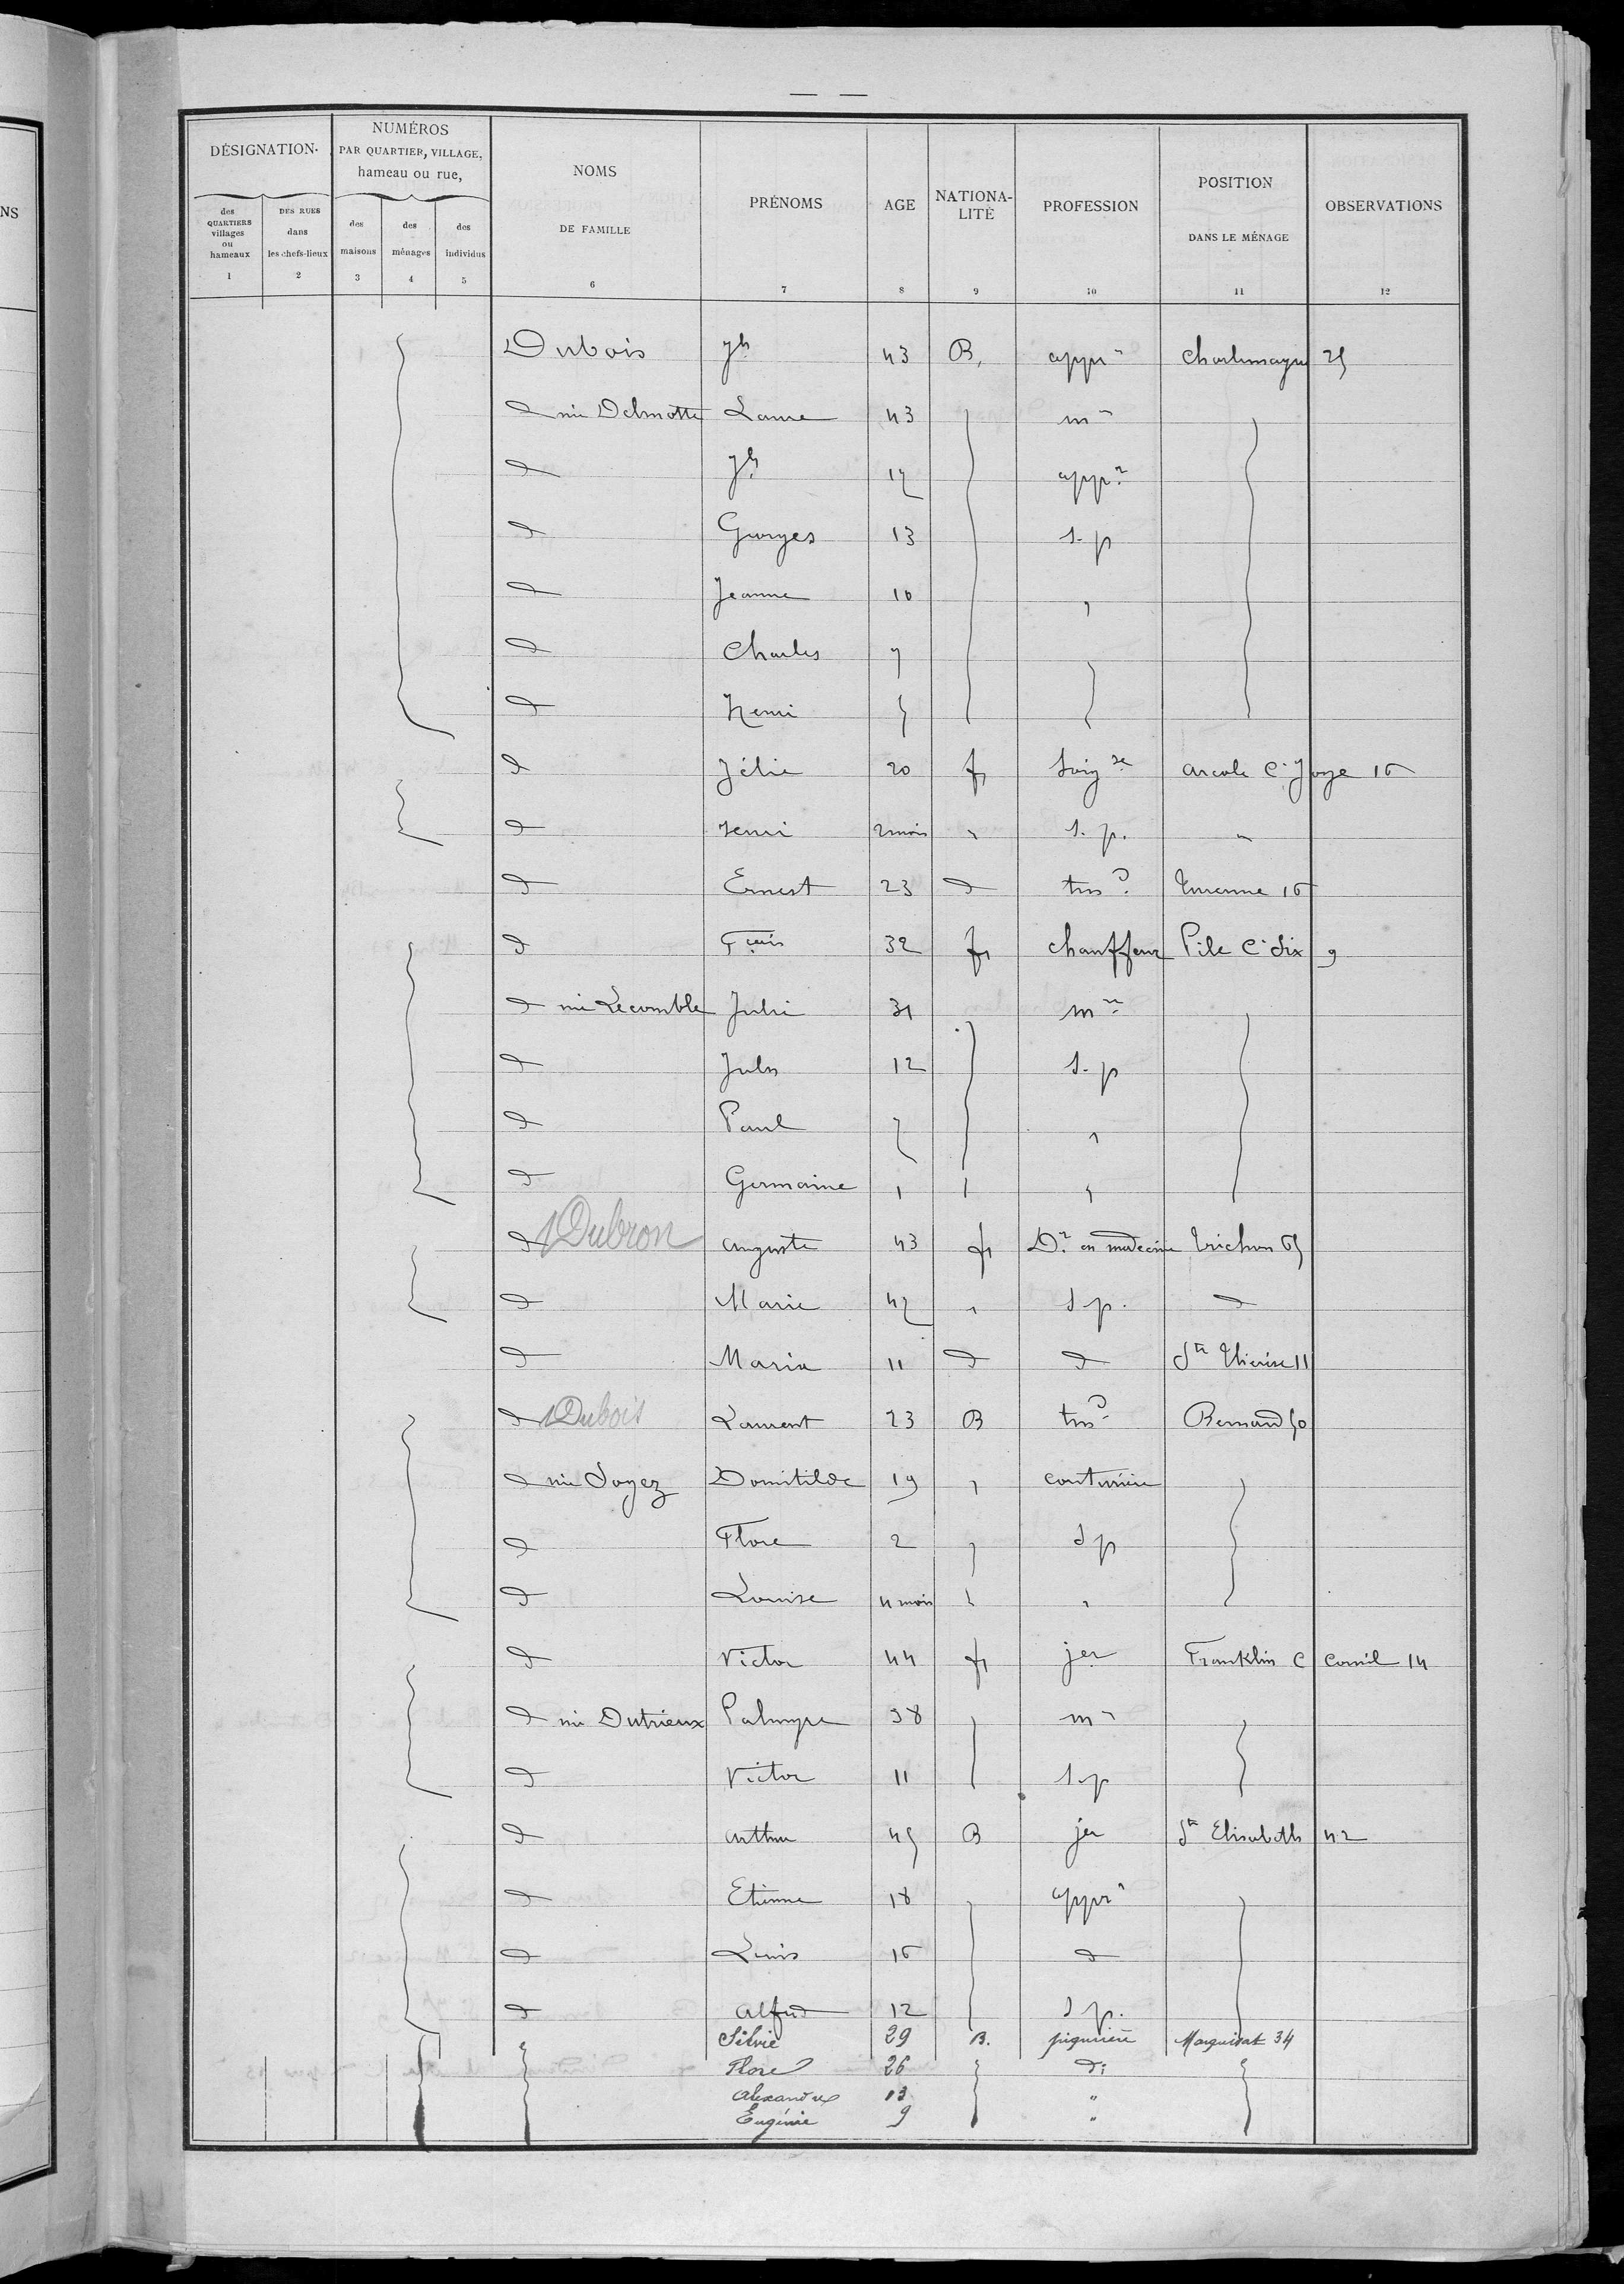 NS
DÉSIGNATION.
NUMÉROS
PAR QUARTIER, VILLAGE,
hameau ou rue,
NOMS
DE FAMILLE
PRÉNOMS
AGE
NATIONA-
LITÉ
PROFESSION
POSITION
DANS LE MÉNAGE
OBSERVATIONS
des
QUARTIERS
villages
ou
hameaux
DES RUES
dans
les chefs-lieux
des
maisons
des
ménages
des
individus
1 2 3 4 5 6 7 8 9 10 11 12
Dubois Jh 43 B. appr Charlemagne 25
d née Delmotte Laure 43 " mre
d Jh 17 appr
d Georges 13 s-p
d Jeanne 10 "
d Charles 7
d Henri 5
d Zélie 20 fr soigse Arcole C. Joye 16
d Henri 2 mois " s.p. "
d Ernest 23 d tisd Turenne 16
d Fçois 32 fr chauffeur Pile C. Six 9
d née Lecomble Julie 31 mre
d Jules 12 s-p
d Paul 7 "
d Germaine 1 "
d Dubron Auguste 43 fr Dr en medecine Trichon 65
d Marie 47 " s p. d
d Maria 11 d d Ste Thérèse 11
d Dubois Laurent 23 B tisd Bernard 50
d née Soyez Domitilde 19 " couturière
d Flore 2 " s p
d Louise 4 mois " "
d Victor 44 fr jer Franklin C Cornil 14
d née Dutrieux Palmyre 38 mre
d Victor 11 s-p
d Arthur 45 B jer Ste Elisabeth 42
d Etienne 18 appr
d Louis 16 d
d Alfred 12 s p.
Silvie 29 B. piqurière Marquisat 34
Flore 26 d:
Alexandre 13 "
Eugénie 9 "